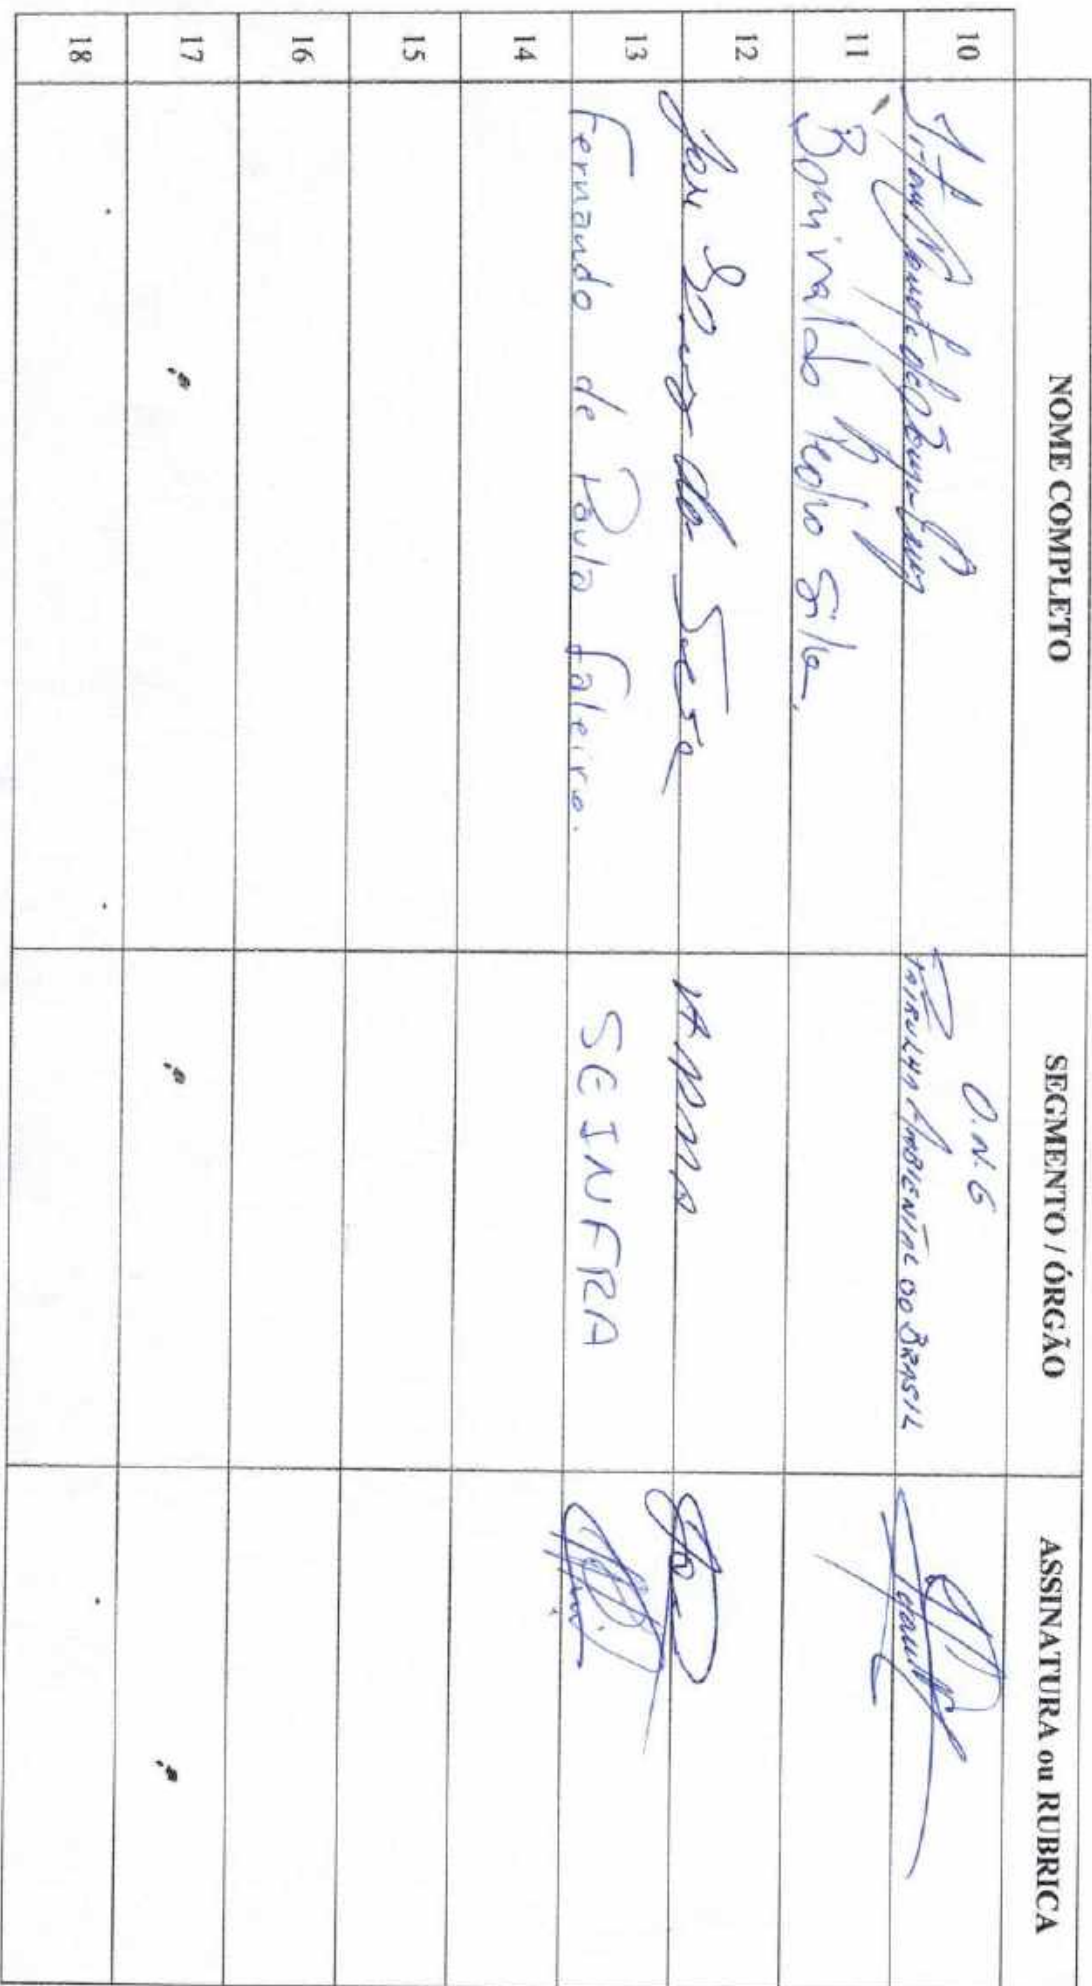 NOME COMPLETO SEGMENTO / ÓRGÃO ASSINATURA ou RUBRICA
10 O.N.G
PATRULHA AMBIENTAL DO BRASIL
11 Bonivaldo Pedro Silva
12 José da AMMA
13 Fernando de Paula Faleiro. SEINFRA
14
15
16
17
18